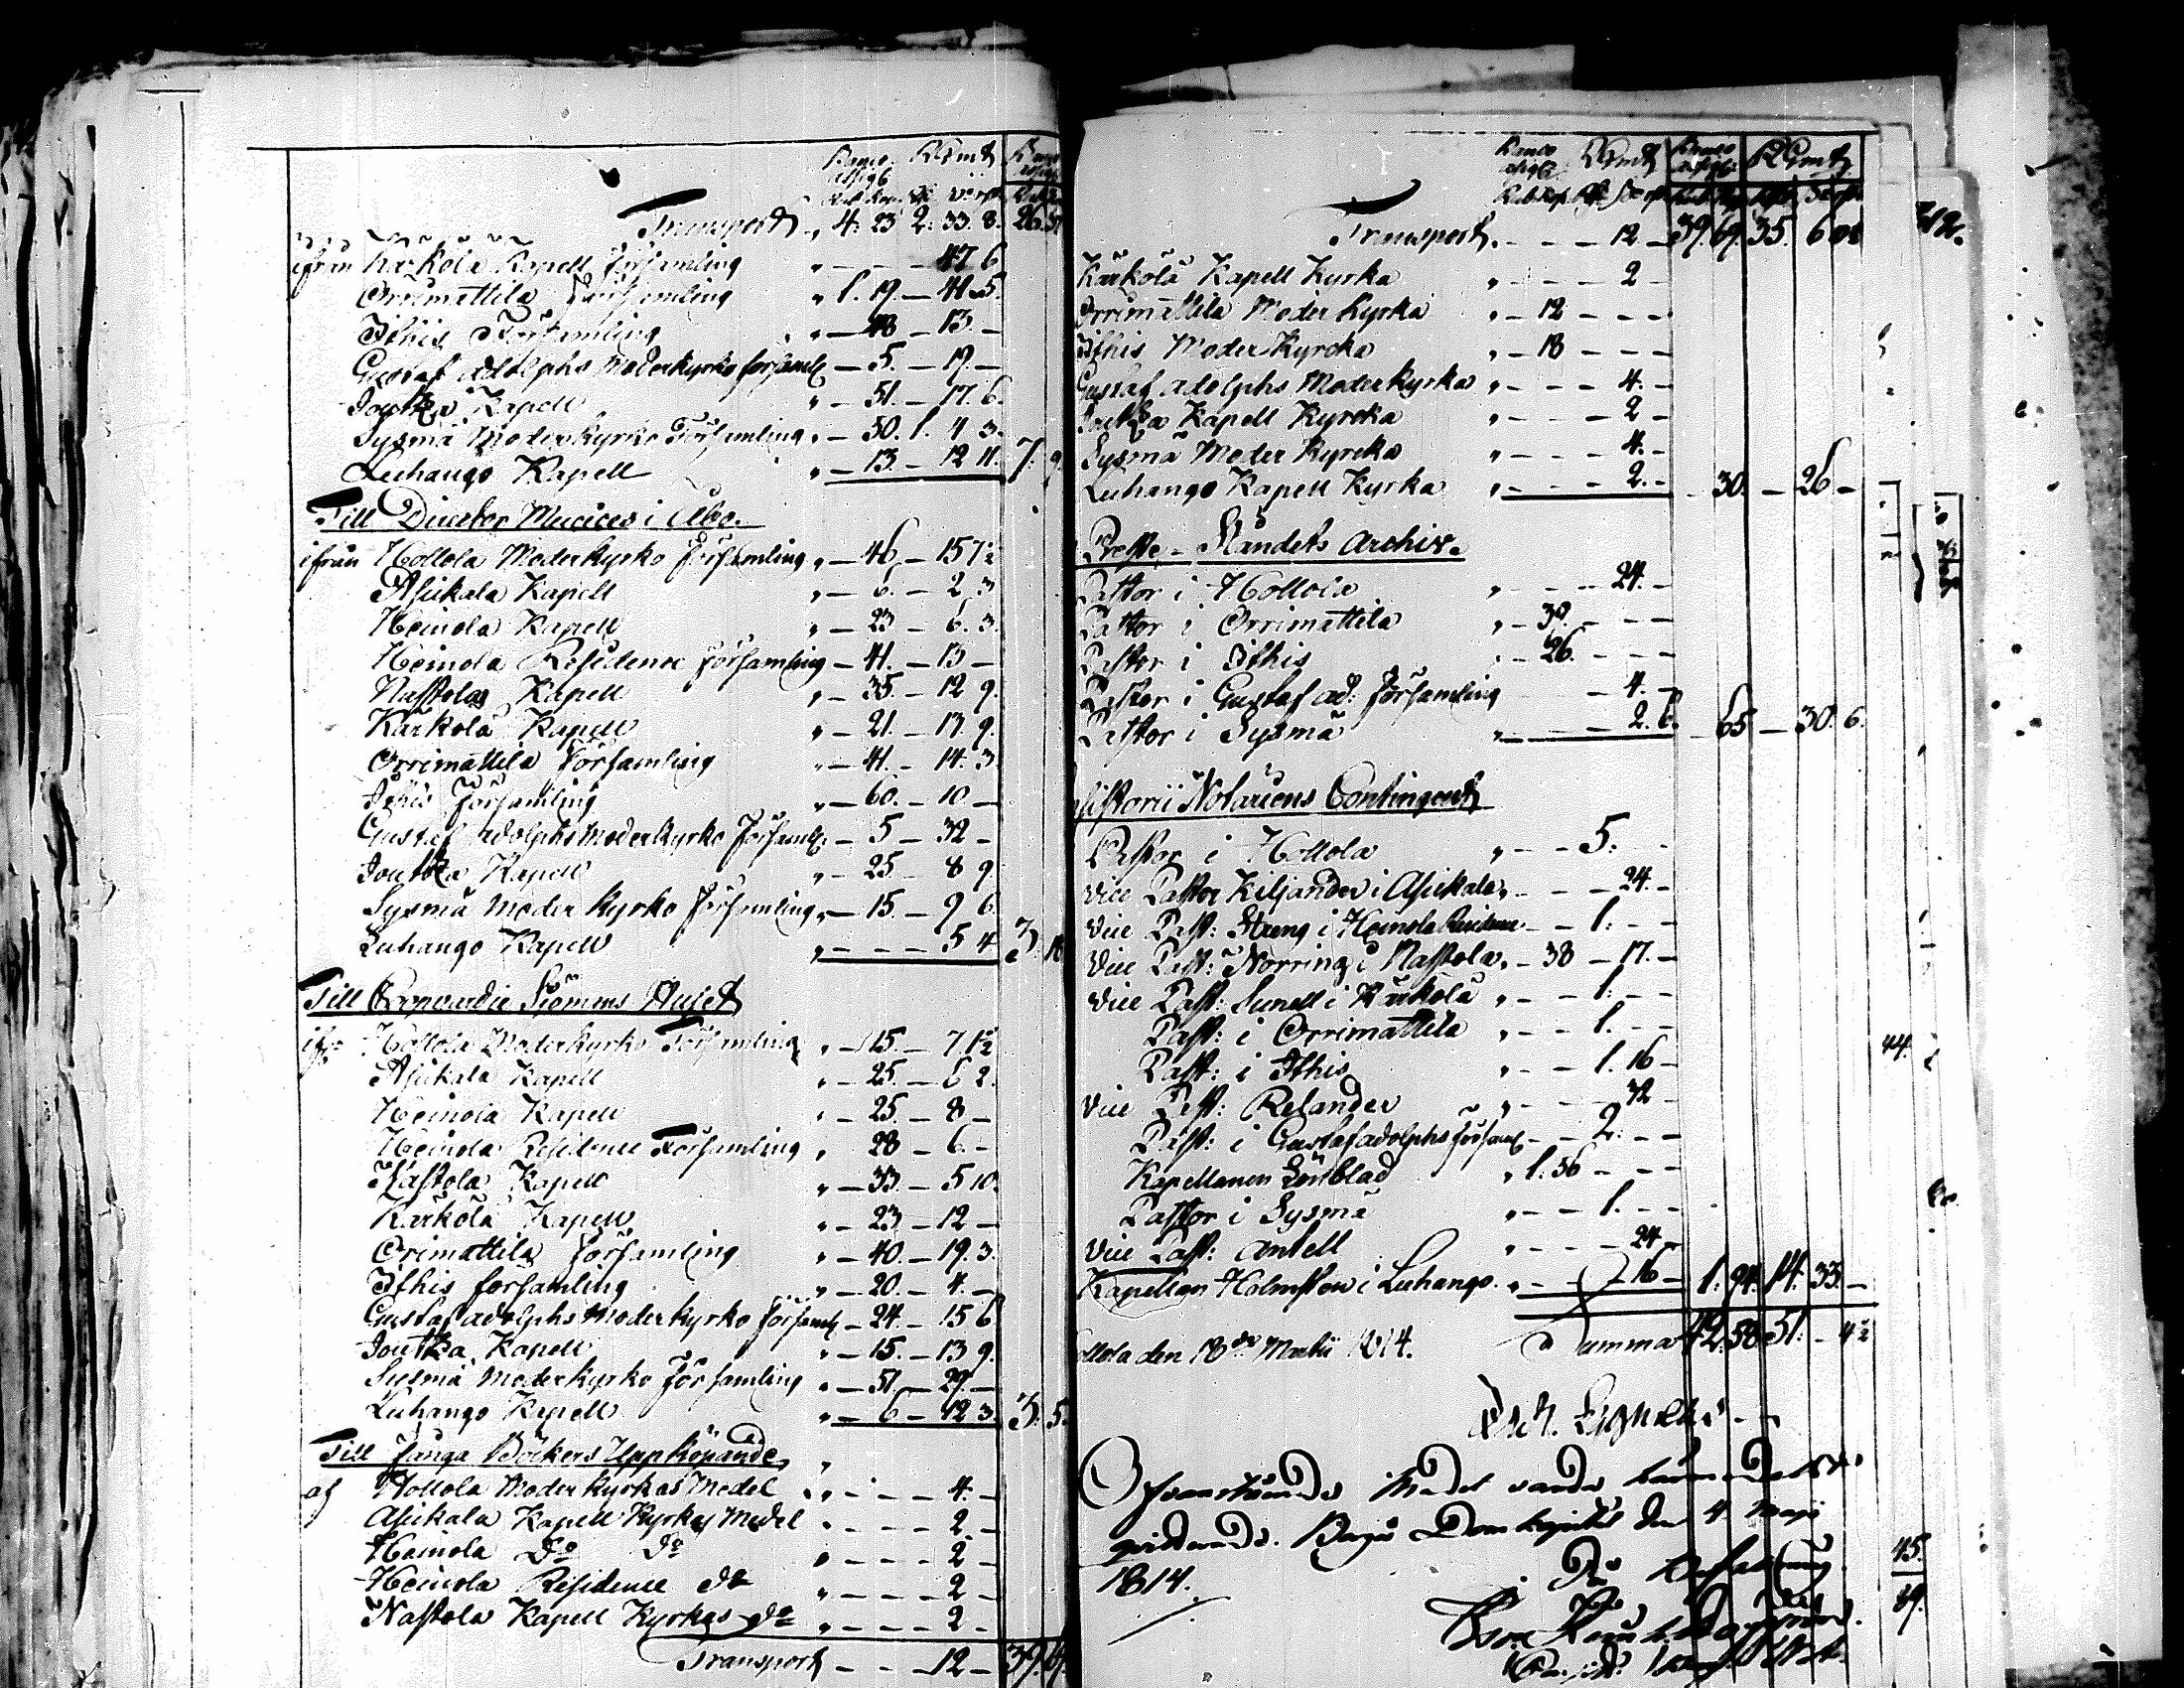 Banco assigb RGmtz Banco
Transport „ 4. 23 2. 33. 8. 26.
ifrån Kärkölä Kapell församling „ – – – 47 6
Orrimattila Församling „ 1. 19. – 41. 5.
Ithis Församling „ – 48 – 13. –
Gustaf Adolphs Moderkyrko församl – 5. – 19. –
Joutza Kapell „ – 31. – 17. 6.
Sysmä Moderkyrko Församling „ – 30. 1. 4 3.
Luhango Kapell „ – 13. – 12 11. 7. 9.
Till Director Musices i Åbo.
ifrån Hollola Moderkyrko Församling „ – 46 – 15 7½
Asickala Kapell „ – 6. – 2 3
Heinola Kapell „ – 23 – 6. 3.
Heinola Residence Församling – 41. – 13 –
Nastola Kapell „ – 35. – 12 9.
Kärkölä Kapell „ – 21. – 13. 9.
Orrimattila Församling „ – 41. – 14. 3.
Ithis Församling „ – 60. – 10. –
Gustaf Adolphs Moderkyrko Församl. – 5 – 32 –
Joutza Kapell „ – 25. – 8 9
Sysmä Moder kyrko Församling „ – 15. – 9 6.
Luhango Kapell „ – – – 5 4 3.
Till Sjömans Huset
ifr: Hollola Moderkyrko Församling „ – 15. – 7 1½
Asickala Kapell „ – 25. – 6 2.
Heinola Kapell „ – 25. – 8 –
Heinola Residence Församling „ 28 – 6. –
Nastola Kapell „ – 33. – 5 10.
Kärkölä Kapell „ – 23 – 12 –
Orimattila församling „ – 40. – 19. 3.
Ithis församling „ – 20. – 4. –
Gustaf Adolphs Moderkyrko Församl – 24. – 15 6
Joutza Kapell „ – 15. – 13 9.
Sysmä Moderkyrko församling „ – 51 – 29. –
Luhango Kapell „ – 6 – 12 3. 3. 5.
Till Fånga Böckers Uppköpande
af Hollola Moder kyrkas Medel „ – – – 4. –
Asickala Kapell Kyrkas Medel „ – – – 2. –
Heinola Do Do „ – – – 2 –
Heinola Residence do „ – – – 2 –
Nastola Kapell Kyrkas do „ – – – 2 –
Transport – – – 12 – 39. 69.
Banco assigb: RGmtz Banco assigb: RGmtz
Transport. – – – 12 – 39. 69. 35. 6
Kärkölä Kapell Kyrka „ – – – 2 –
Orrimattila Moder Kyrka „ – 12 – – –
Ithis Moder Kyrcka „ – 18 – – –
Gustaf Adolphs Moderkyrka „ – – – 4. –
Joutza Kapell Kyrcka „ – – – 2 –
Sysmä Moder Kyrcka „ – – – 4. –
Luhango Kapell Kyrka „ – – – 2. – – 30. – 26 –
Preste-Ståndets Archiv.
Pastor i Hollola „ – – – 24. –
Pastor i Orrimattila „ – 39. – – –
Pastor i Ithis „ – 26. – – –
Pastor i Gustaf Ad: församling – 4. –
Pastor i Sysmä „ – – – 2. 6. – 65 – 30. 6.
Notariens Contingent
Pastor i Hollola „ – – 5. –
Vice Pastor Kiljander i Asickala „ – – – 24. –
Vice Past: Streng i Heinola Residence – – 1. – –
Vice Past: Norring i Nastola „ – 38 – 17. –
Vice Past: Sunell i Kärkölä „ – – 1. – –
Past: i Orrimattila „ – – 1. – –
Past: i Ithis „ – – 1. 16 –
Vice Past: Relander „ – – – 32 –
Past: i Gustaf Adolphs församl – – 2. – –
Kapellanen Lönblad „ 1. 56 – – –
Pastor i Sysmä „ – – 1. – –
Vice Past: Antell „ – – – 24 –
Kapellan Holmsten i Luhango „ – – 16 – 1. 94. 14. 33. –
Hollola den 18de Martii 1814. Summa 42. 58 51. – 4½
Ofvanstående Medel
Borgå Domkapitel den 4 Maji
1814.
44.
45.